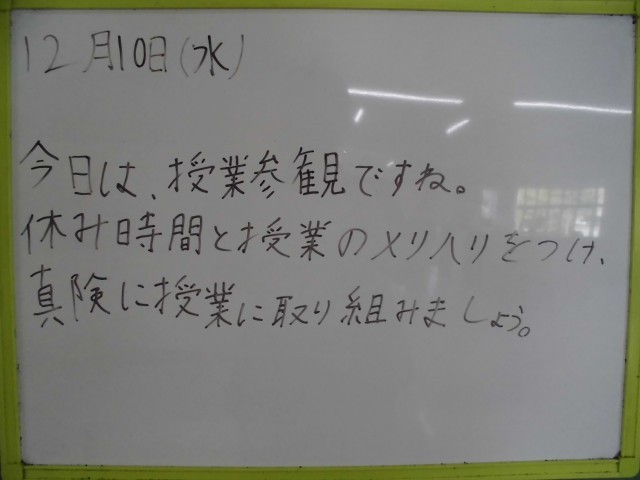 12月10日(水)
今日は、授業参観ですね。
休み時間と授業のメリハリをつけ、
真険に授業に取り組みましょう。